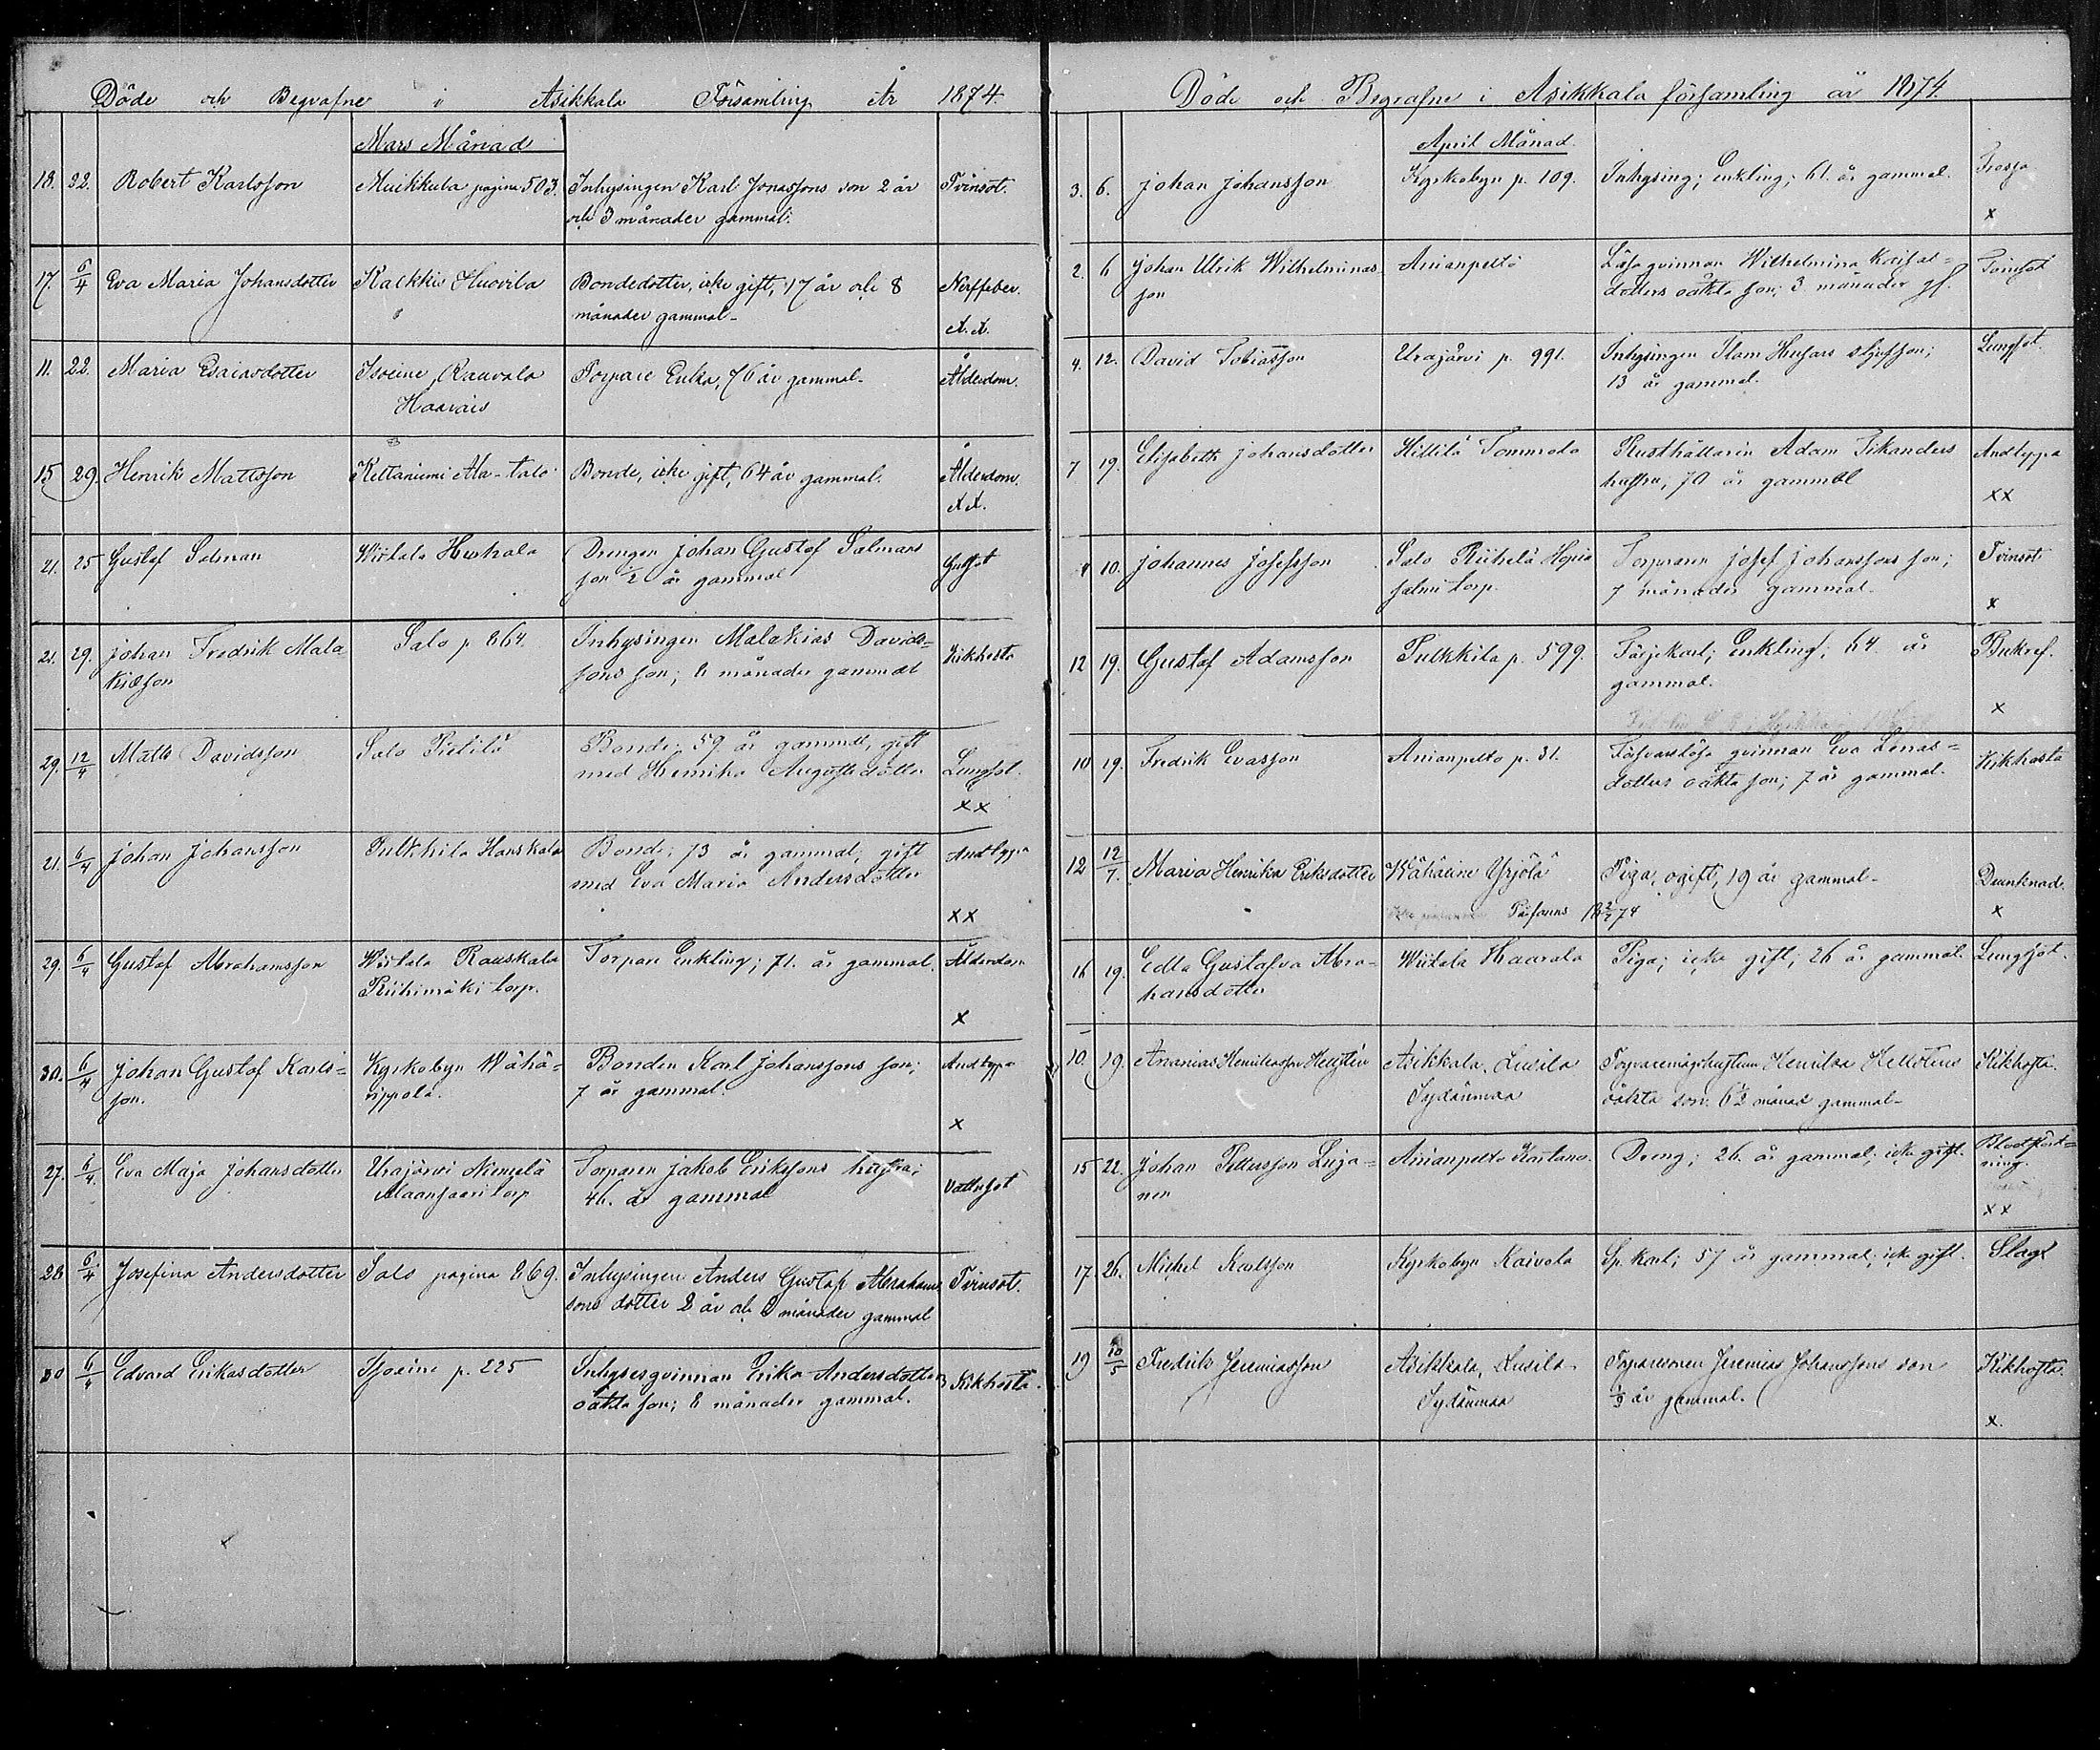 Döde och Begrafne i Asikkala Församling År 1874.
Mars Månad
18. 22. Robert Karlsson Muikkula pagina 503. Inhysingen Karl Jonassons son 2 år Tvinsot.
och 3 månader gammal.
17. 6/4 Eva Maria Johansdotter Kalkkis Huovila Bondedotter, icke gift, 17 år och 8 Nerffeber.
månader gammal-
11. 22. Maria Esaiasdotter Isoeine Rauvala Torpare Enka, 76 år gammal- Ålderdom.
15 29. Henrik Mattsson Kettaniemi Ala-talo Bonde, icke gift, 64 år gammal. Ålderdom.
21. 25 Gustaf Salman Wistala Drengen Johan Gustaf Salmans
son 1/2 år gammal
21. 29. Johan Fredrik Mala- Salo p. 864. Inhysingen Malakias Davids- Kikhosta
sons son; 8 månader gammal
29. 12/4 Matts Davidsson Salo Bonde; 59 år gammal, gift Lungsot.
med Henrika Augustsdotter
xx
21. 6/4 Johan Johansson Pulkkila Hanskala Bonde; 73 år gammal, gift Andtäppa
med Eva Maria Andersdotter
xx
29. 6/4 Gustaf Abrahamsson Wistala Rauskala Torpare Enkling; 71. år gammal. Ålderdom
Riihimäki torp.
x
30. 6/4 Johan Gustaf Karls- Kyrkobyn Wähä- Bonden Karl Johanssons son;
son. äippölä. 7 år gammal.
x
27. 6/4 Eva Maja Johansdotter Urajärvi Torparen Jakob Erikssons hustru;
torp 46. år gammal Vattusot
28 6/4 Josefina Andersdotter Salo pagina 869. Inhysingen Anders Gustaf Abrahams Tvinsot.
sons dotter 2 år och månader gammal
30 6/4 Edvard Erikasdotter Isoeine p. 225 Inhysesqvinnan Erika Andersdotters Kikhosta.
oäkta son; 8 månader gammal.
Döde och Begrafne i Asikkala församling år 1874.
April Månad.
3. 6. Johan Johansson Kyrkobyn p. 109. Inhysing; enkling; 61. år gammal.
x
2. 6 Johan Ulrik Wilhelminas Anianpelto Lösa qvinnan Wilhelmina Tvinsot
son dotters oäkta son; 3 månader gl.
4. 12. David Tobiasson Urajärvi p. 991. Inhysingen styfson; Lungsot.
13 år gammal.
7 19. Elisabeth Johansdotter Hillilä Tommola Rusthållarin Adam Sikanders Andtyppa
hustru, 70 år gammal xx
4 10. Johannes Josefsson Salo Riihelä Torparen Josef Johanssons son; Tvinsot
torp. 7 månader gammal.
x
12 19. Gustaf Adamsson Pulkkila p. 599. Enkling; 64 år Bukref.
gammal.
x
10 19. Fredrik Evasson Anianpelto p. 31. Försvarslösa qvinnan Eva Lenas- Kikhosta
dotters oäkta son; 7 år gammal.
12 12/7. Maria Henrika Eriksdotter Kähäeine Yrjölä Piga, ogift, 19 år gammal- Drunknad.
x
16 19. Edla Gustafva Abra- Wistala Haarala Piga; icke gift; 26 år gammal. Lungsot.
hamsdotter
10. 19. Ananias Henrikasson Hellstén Asikkala, Lusila Kikhosta.
Sydänmaa oäkta son. 6 1/2 månad gammal-
15 22. Johan Pettersson Luja- Anianpelto Kartano. Dreng; 26. år gammal; icke gift. Blodstört-
nen ning.
xx
17. 26. Michel Karlsson Kyrkobyn Kaivola Sp. karl; 57 år gammal; icke gift. Slag
19 10/5 Fredrik Jeremiasson Asikkala, Lusila Torparesonen Jeremias Johanssons son Kikhosta.
Sydänmaa 1/3 år gammal.
x.